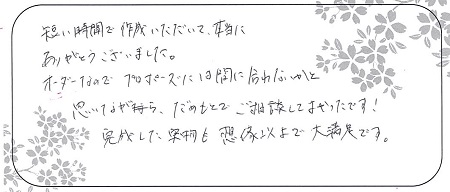 短い時間で作成いただいて、本当に
ありがとうございました。
オーダーなので プロポーズには間に合わないかと
思いながら、だめもとで ご相談してよかったです！
完成した実物も 想像以上で 大満足です。